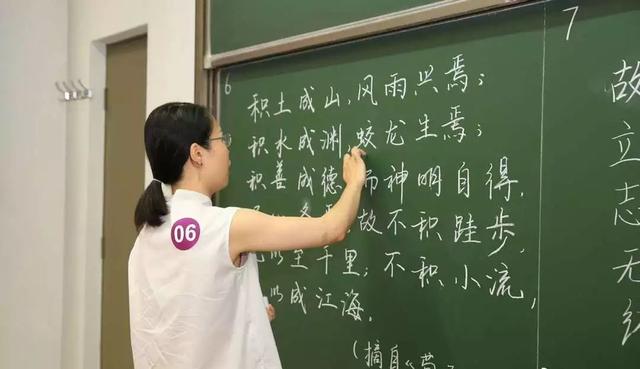 7
6
积土成山,风雨兴焉;
积水成渊,蛟龙生焉;
积善成德,而神明自得,
故不积跬步,
以至千里;不积小流,
以成江海。
(摘自《荀
故
立
志
无
06